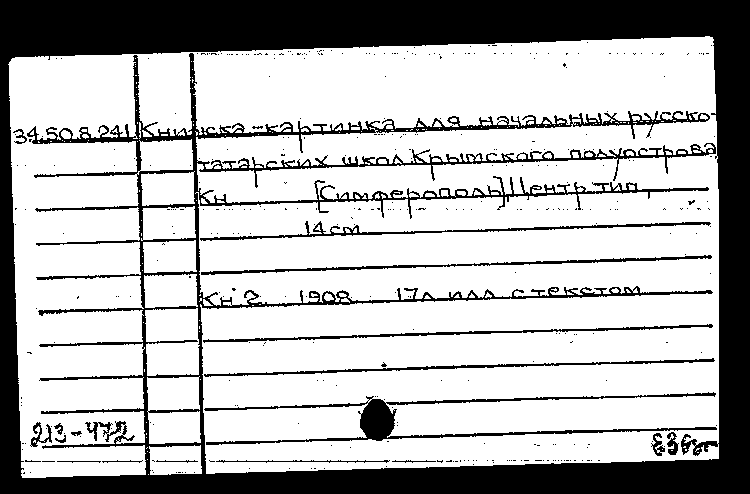 34.50.8.241 Книжка-картинка для начальных русско-
татарских школ Крымского полуострова
Кн [Симферополь], Центр тип,
14 см
Кн 2 1908 17л илл с текстом
213-472